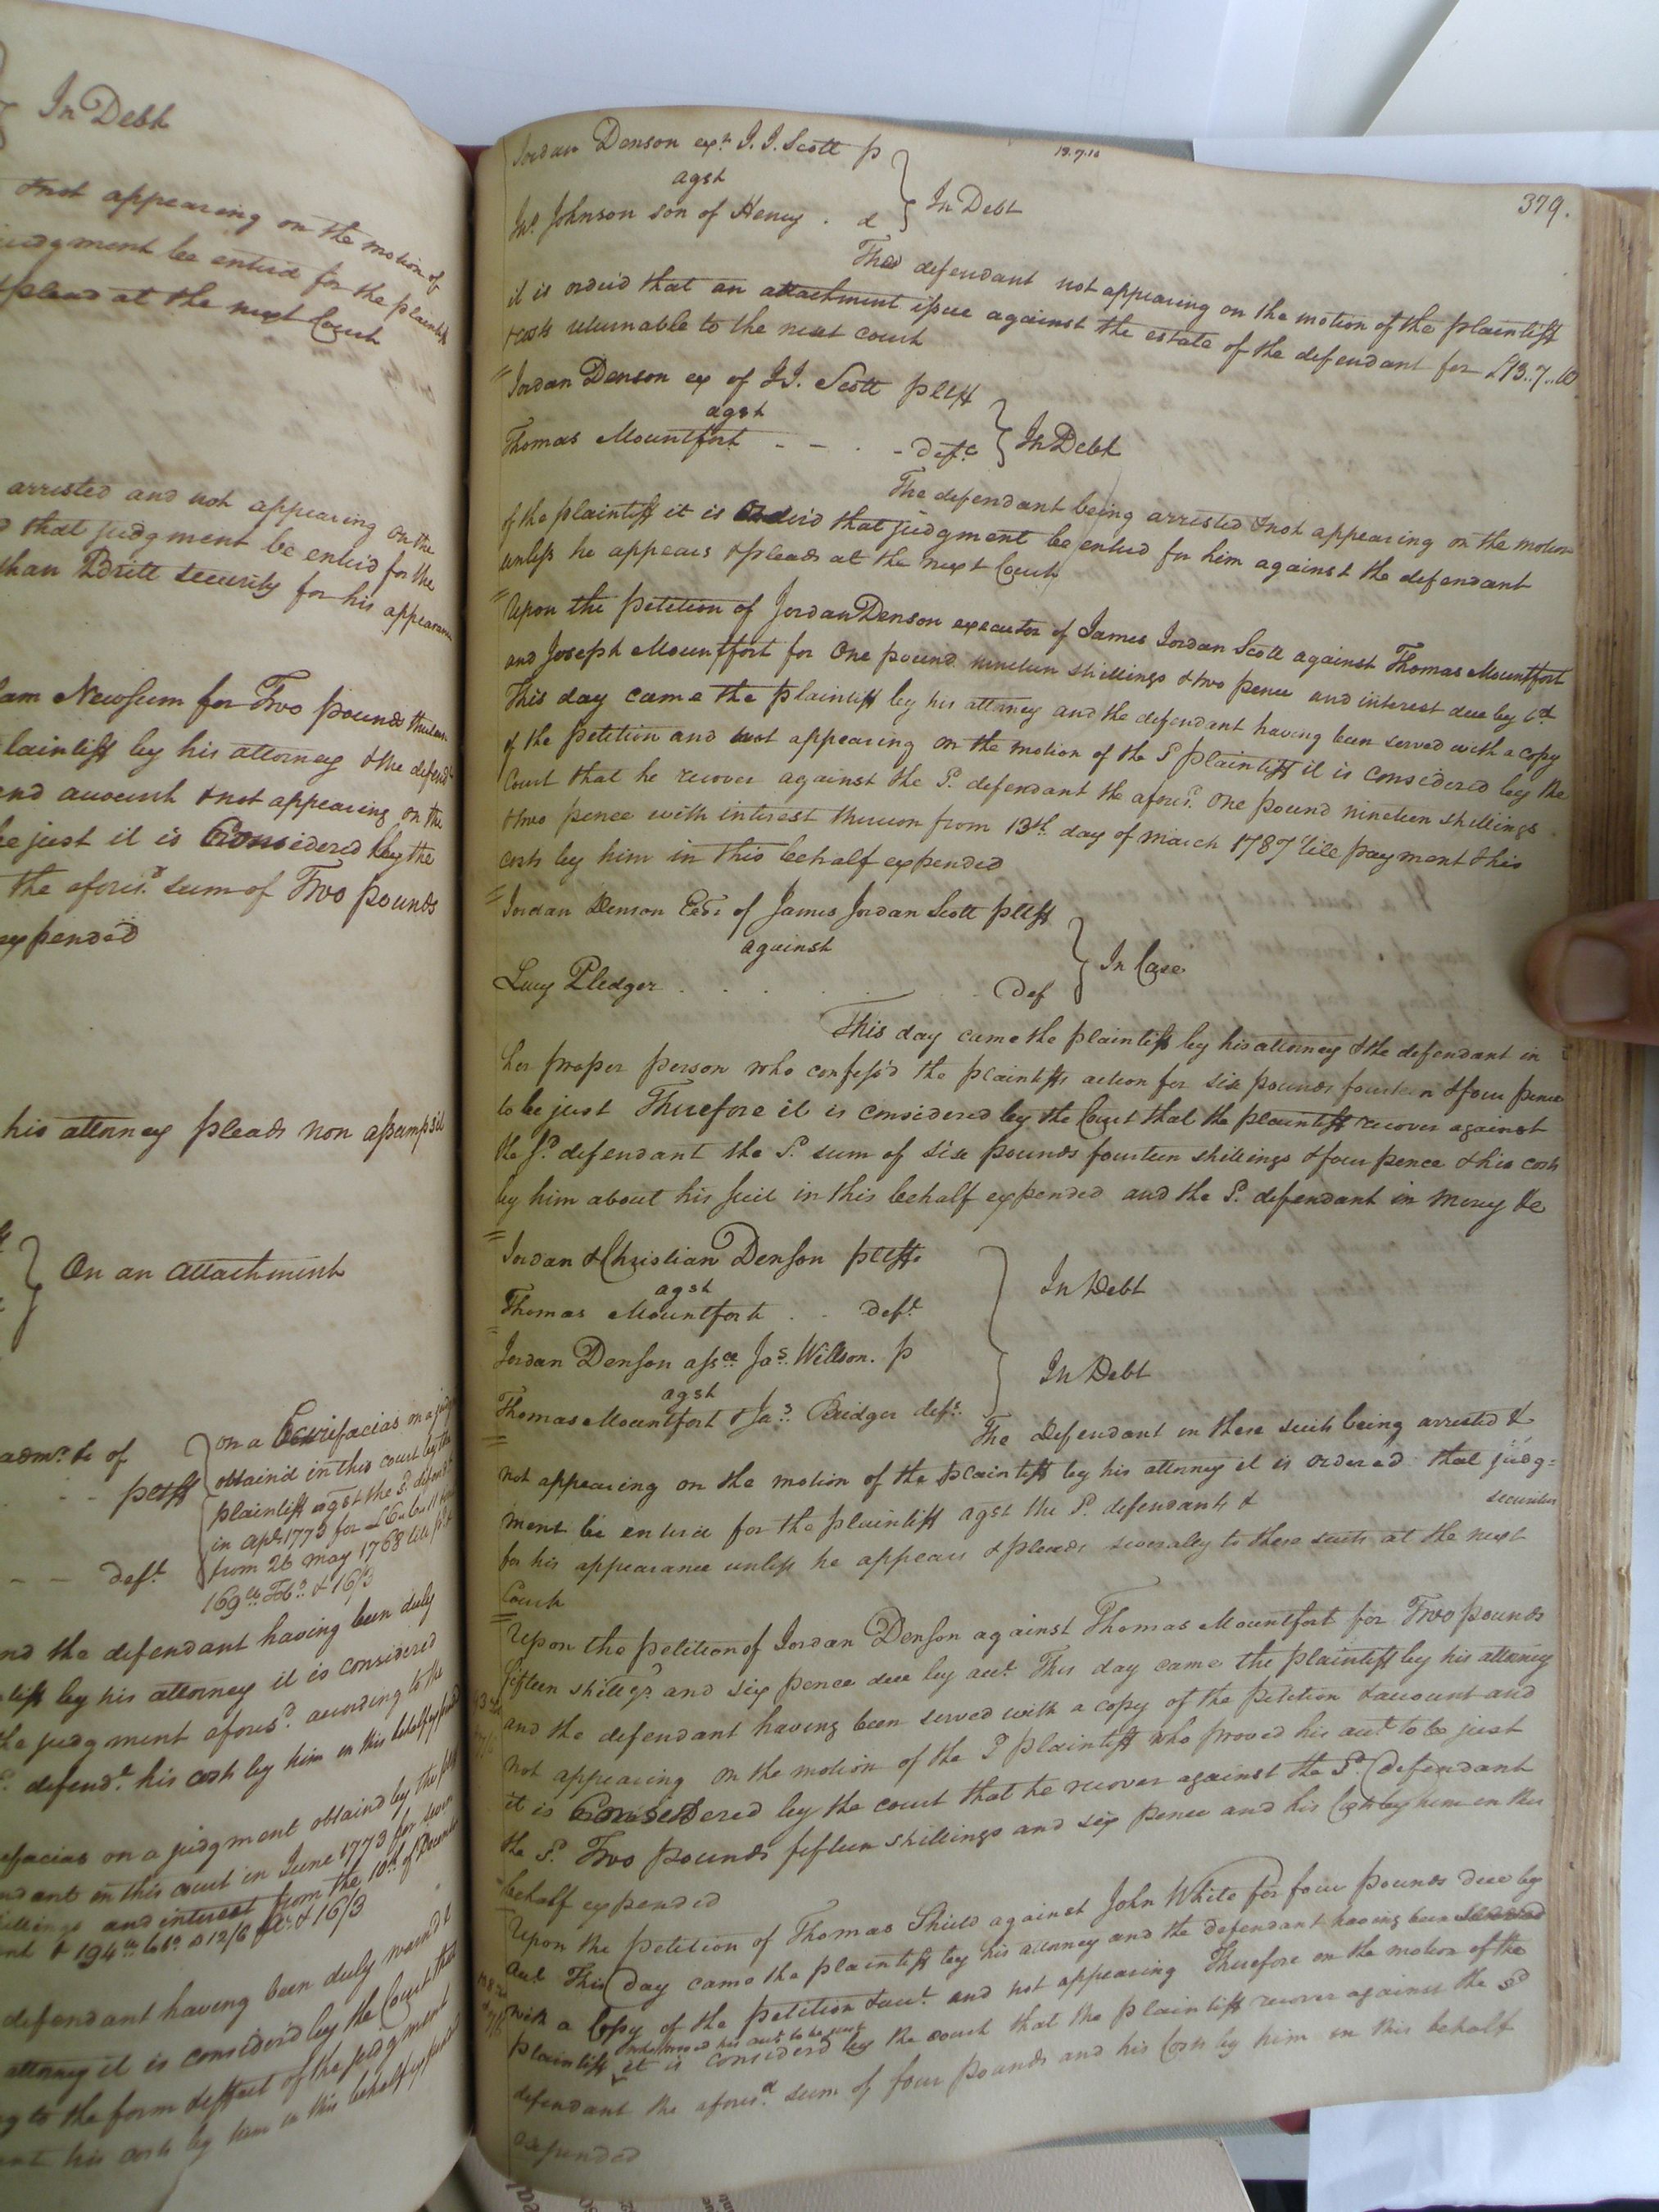 In Debt
& not appearing on the motion of
judgment be enterd for the plaintiff
& plead at the next Court
arrested and not appearing on the
d that judgment be enter'd for the
than Britt security for his appearance
iam Newsum for Two pounds
plaintiff by his attorney & the defend
and account & not appearing on the
be just it is Considered by the
the afores.d sum of Two pounds
expended
his attorney pleads non assumpsit
On an Attachment
adm.r &c of
pltff
deft
on a Scirefacias on a judg
obtain'd in this court by the
plaintiff agst the s.d defend
in apl 1773 for
from 26 may 1768 till
169 lb Tob.o & 16/3
and the defendant having been duly
tiff by his attorney it is considered
the judgment afores.d according to the
s.d defend.t his costs by him in this behalf
efacias on a judgment obtaind by the
endant in this court in June 1773 for
illings and interest from the 10th of
& 16/3
defendant having been duly warn'd &
attorney it is consider'd by the Court that
ng to the form & effect of the judgment
his costs by him in this behalf
13.7.10
379.
Jordan Denson ex.r J. J. Scott p
agst
Jn.o Johnson son of Henry . d
In Debt
The defendant not appearing on the motion of the plaintiff
it is order'd that an attachment issue against the estate of the defendant for £13..7..10
& costs returnable to the next court
Jordan Denson ex of JJ. Scott pltff
agst
Thomas Mountfort - - . - def.t
In Debt
The defendant being arrested & not appearing on the motion
of the plaintiff it is Order'd that judgment be enterd for him against the defendant
unless he appears & pleads at the next Court
Upon the petition of Jordan Denson executor of James Jordan Scott against Thomas Mountfort
and Joseph Mountfort for One pound nineteen shillings & two pence and interest due by
This day came the plaintiff by his attorney and the defendant having been served with a copy
of the petition and not appearing on the motion of the s.d plaintiff it is considered by the
Court that he recover against the s.d defendant the afores.d One pound nineteen shillings
& two pence with interest thereon from 13th day of march 1787 till payment & his
costs by him in this behalf expended
Jordan Denson Exor of James Jordan Scott pltff
against
Lucy Pledger . . . . . . Def
In Case
This day came the plaintiff by his attorney & the defendant in
her proper person who confess'd the plaintiffs action for six pounds fourteen & four pence
to be just Therefore it is considered by the Court that the plaintiff recover against
the s.d defendant the s.d sum of six pounds fourteen shillings & four pence & his costs
by him about his suit in this behalf expended and the s.d defendant in mercy &c
Jordan & Christian Denson pltffs
agst
Thomas Mountfort . . deft
In Debt
Jordan Denson ass.ee Ja.s Willson. p
agst
Thomas Mountfort & Ja.s Bridger def.ts
In Debt
The Defendant in these suits being arrested &
not appearing on the motion of the plaintiff by his attorney it is ordered that judg=
ment be enterd for the plaintiff agst the s.d defendants & securities
for his appearance unless he appears & pleads severally to these suits at the next
Court
Upon the petition of Jordan Denson against Thomas Mountfort for Two pounds
fifteen shillgs and six pence due by acct. This day came the plaintiff by his attorney
and the defendant having been served with a copy of the petition & account and
not appearing on the motion of the s.d plaintiff who proved his acct to be just
it is Considered by the court that he recover against the s.d defendant
the s.d Two pounds fifteen shillings and six pence and his Costs by him in this
behalf expended
Upon the petition of Thomas Shield against John White for four pounds due by
acct This Day came the plaintiff by his attorney and the defendant having been
with a Copy of the petition & acct. and not appearing Therefore on the motion of the
who proved his acct to be just
plaintiff it is considerd by the court that the plaintiff recover against the sd
defendant the afores.d sum of four pounds and his Costs by him in this behalf
expended